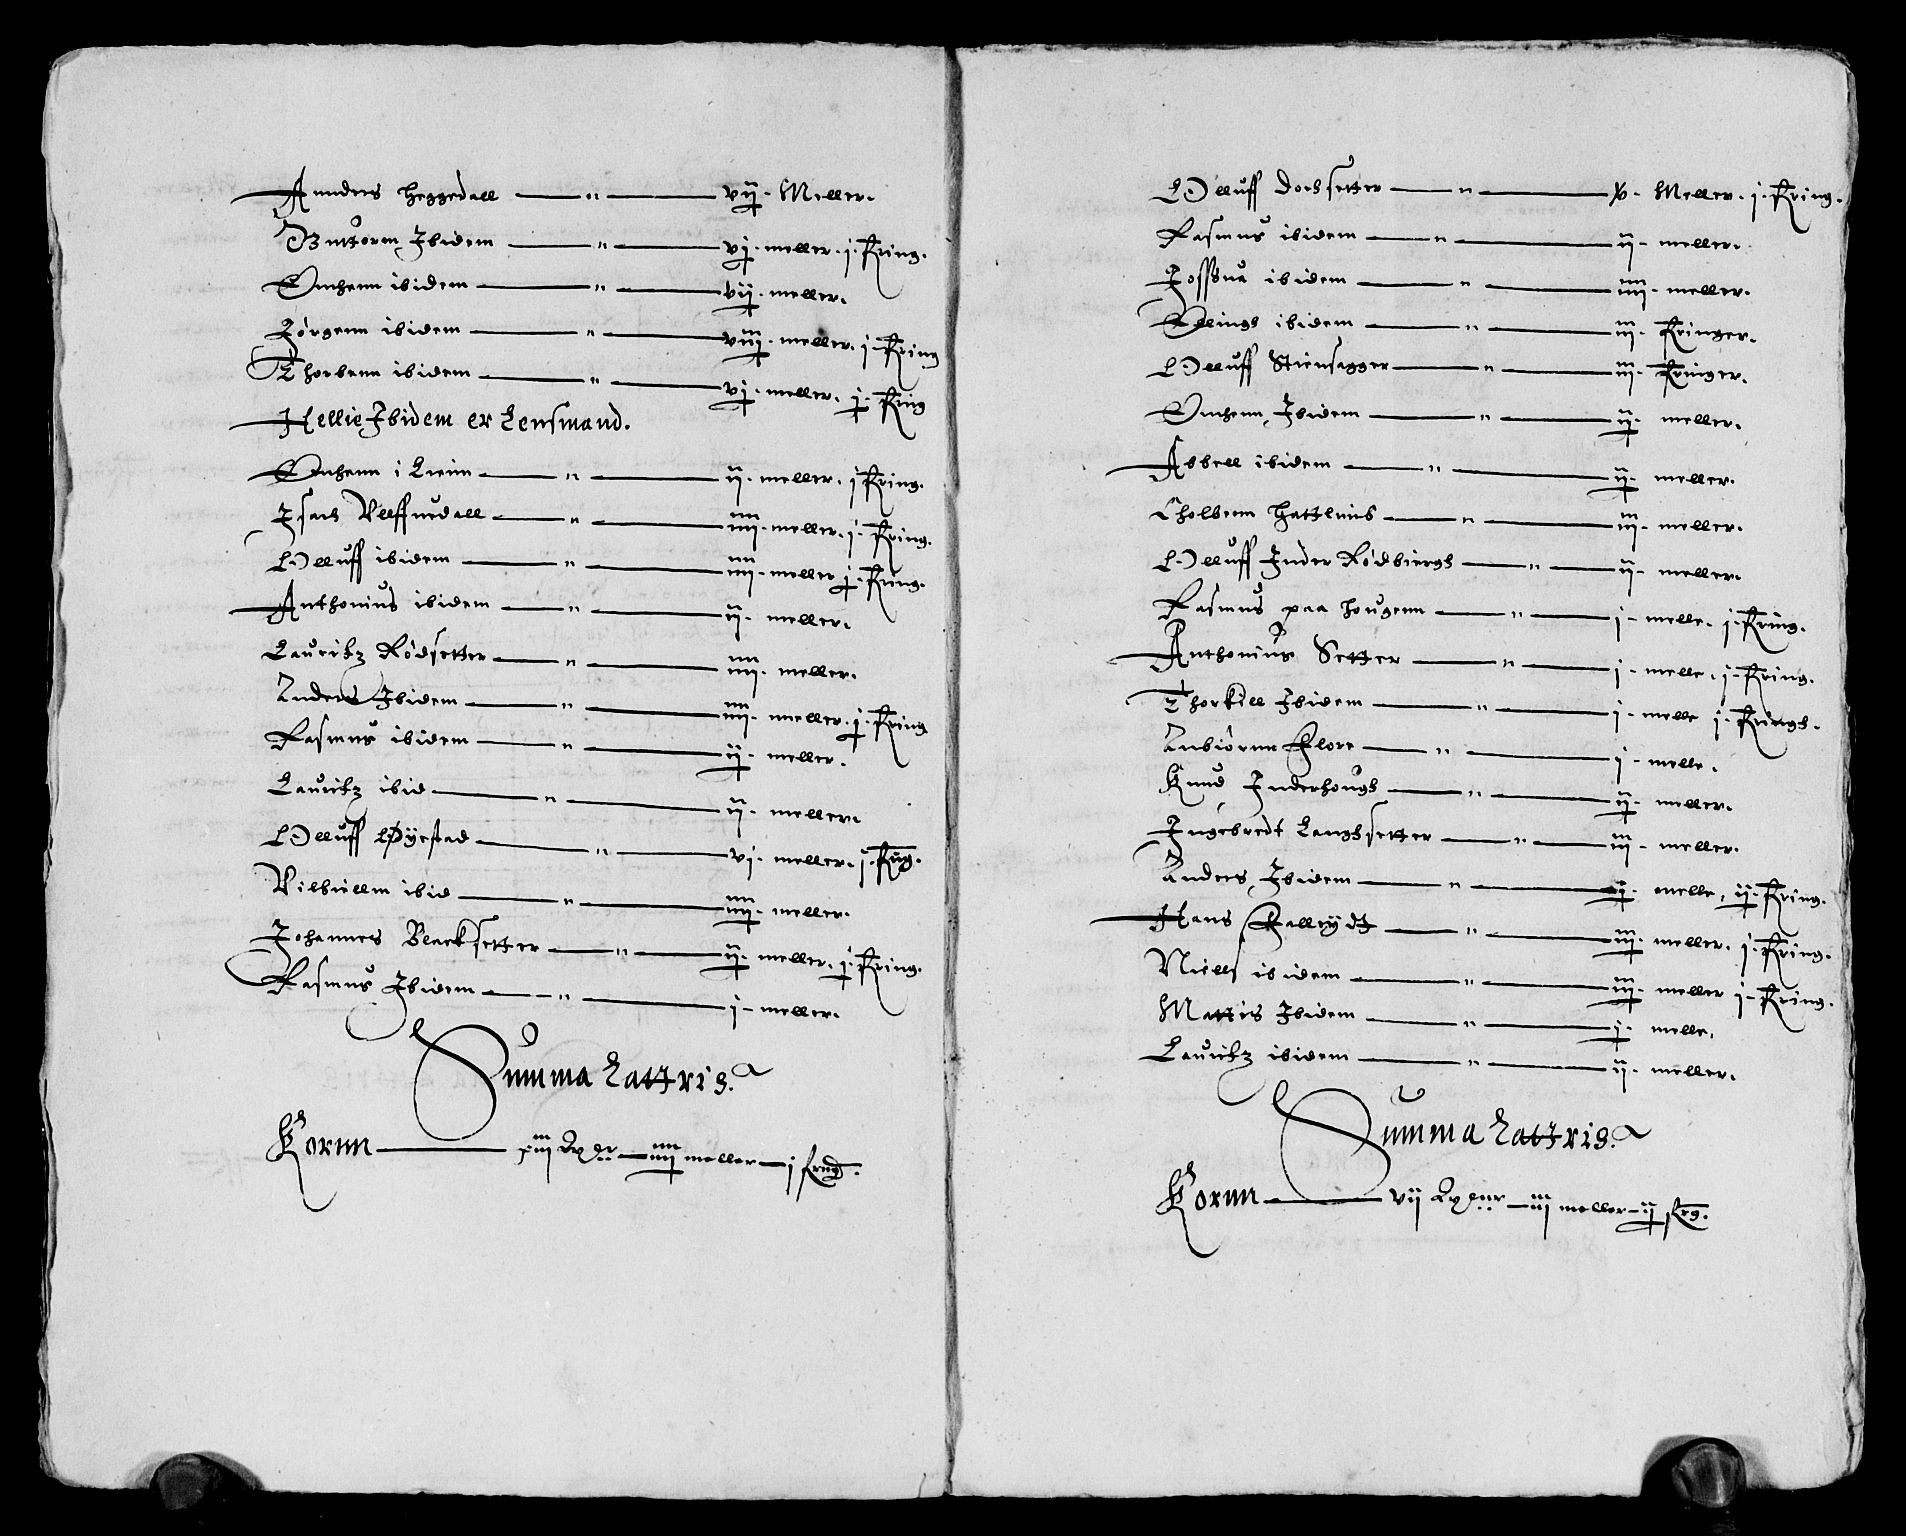 Annders Heggedall — " — vij - Meller.
Guttorm Ibidem — " — vj - meller. j - Kring.
Omhenn ibidem — " — vij - meller.
Jørgenn ibidem — " — viij - meller. j - Kring
Thorbenn ibidem — " — vj - meller. j - Kring
Hellie Ibidem er Lensmand.
Omhenn i Lienn — " — ij - meller. j Kring.
Isach Vlffuedall — " — iiij - meller. j - Kring.
Olluff ibidem — " — iiij - meller j - Kring.
Anthonius ibidem — " — ij - meller.
Lauritz Rødsetter — " — iiij - meller.
Anders Ibidem — " — iiij - meller. j - Kring
Rasmus ibidem — " — ij - meller.
Lauritz ibid — " — ij - meller.
Olluff Øyestad — " — vj - meller. j - Krg.
Vilhellm ibid — " — iiij - meller.
Johannes Blacksetter — " — ij - meller. j - Kring.
Rasmus Ibidem — " — j - meller.
Summa Lattris.
Kornn — xiij — iiij meller — j Kring.
Olluff Dochsetter — " — x - Meller. j - Kring.
Rasmus ibidem — " — ij - meller.
Jossua ibidem — " — iiij - meller.
Ellingh ibidem — " — iij - Kringer.
Olluff Stiensagger — " — iij - Kringer.
Omhenn Ibidem — " — ij - meller.
Abbell ibidem — " — ij - meller.
Tholbenn — " — iij - meller.
Olluff Inder Rødbiergh — " — ij - meller.
Rasmus paa Hougenn — " — j - melle. j - Kring.
Anthonius Setter — " — j - melle. j - Kring.
Thorkill Ibidem — " — j - melle j - Kringh.
Anbiørnn Flore — " — j - melle.
Knud Inderhough — " — ij - meller.
Ingebredt Langhsetter — " — iij - meller.
Anders Ibidem — " — ij - melle, ij - Kring.
Hans Halleydt — " — iij - meller. j - Kring.
Niells ibidem — " — iij - meller j - Kring.
Mattis Ibidem — " — j - melle,
Lauritz ibidem — " — ij - meller.
Summa Lattris.
Kornn — vij — iij meller — ij Krg.